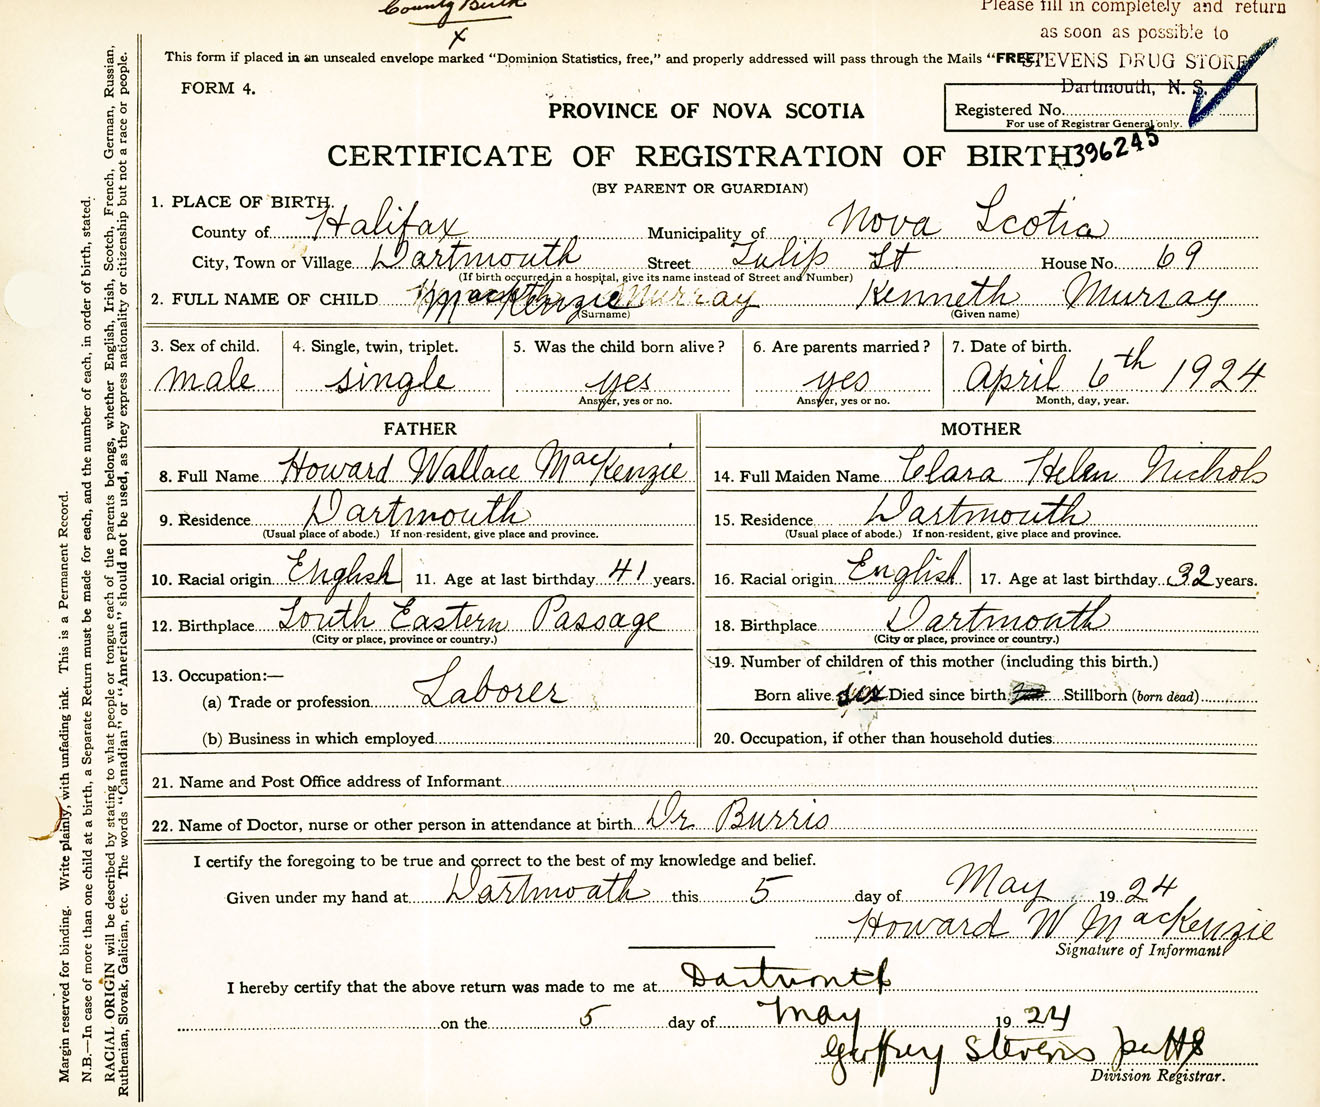 County Birth
x
Please fill in completely and return
as soon as possible to
STEVENS DRUG STORE
Dartmouth, N. S.
This form if placed in an unsealed envelope marked "Dominion Statistics, free," and properly addressed will pass through the Mails "FREE"
FORM 4.
PROVINCE OF NOVA SCOTIA
Registered No.
For use of Registrar General only.
396245
CERTIFICATE OF REGISTRATION OF BIRTH
(BY PARENT OR GUARDIAN)
1. PLACE OF BIRTH.
County of Halifax Municipality of Nova Scotia
City, Town or Village Dartmouth Street Tulip St House No. 69
(If birth occurred in a hospital, give its name instead of Street and Number)
2. FULL NAME OF CHILD MacKenzie Murray Kenneth Murray
(Surname) (Given name)
3. Sex of child. 4. Single, twin, triplet. 5. Was the child born alive? 6. Are parents married? 7. Date of birth.
male single yes yes April 6th 1924
Answer, yes or no. Answer, yes or no. Month, day, year.
FATHER MOTHER
8. Full Name Howard Wallace MacKenzie 14. Full Maiden Name Clara Helen Nichols
9. Residence Dartmouth 15. Residence Dartmouth
(Usual place of abode.) If non-resident, give place and province. (Usual place of abode.) If non-resident, give place and province.
10. Racial origin English 11. Age at last birthday 41 years. 16. Racial origin English 17. Age at last birthday 32 years.
12. Birthplace South Eastern Passage 18. Birthplace Dartmouth
(City or place, province or country.) (City or place, province or country.)
13. Occupation:— 19. Number of children of this mother (including this birth.)
(a) Trade or profession Laborer Born alive six Died since birth Stillborn (born dead)
(b) Business in which employed 20. Occupation, if other than household duties
21. Name and Post Office address of Informant
22. Name of Doctor, nurse or other person in attendance at birth Dr Burris
I certify the foregoing to be true and correct to the best of my knowledge and belief.
Given under my hand at Dartmoath this 5 day of May 1924
Howard W MacKenzie
Signature of Informant
I hereby certify that the above return was made to me at Dartmouth
on the 5 day of May 1924
Geoffrey Stevens per HS
Division Registrar.
Margin reserved for binding. Write plainly, with unfading ink. This is a Permanent Record.
N.B.—In case of more than one child at a birth, a Separate Return must be made for each, and the number of each, in order of birth, stated.
RACIAL ORIGIN will be described by stating to what people or tongue each of the parents belongs, whether English, Irish, Scotch, French, German, Russian,
Ruthenian, Slovak, Galician, etc. The words "Canadian" or "American" should not be used, as they express nationality or citizenship but not a race or people.